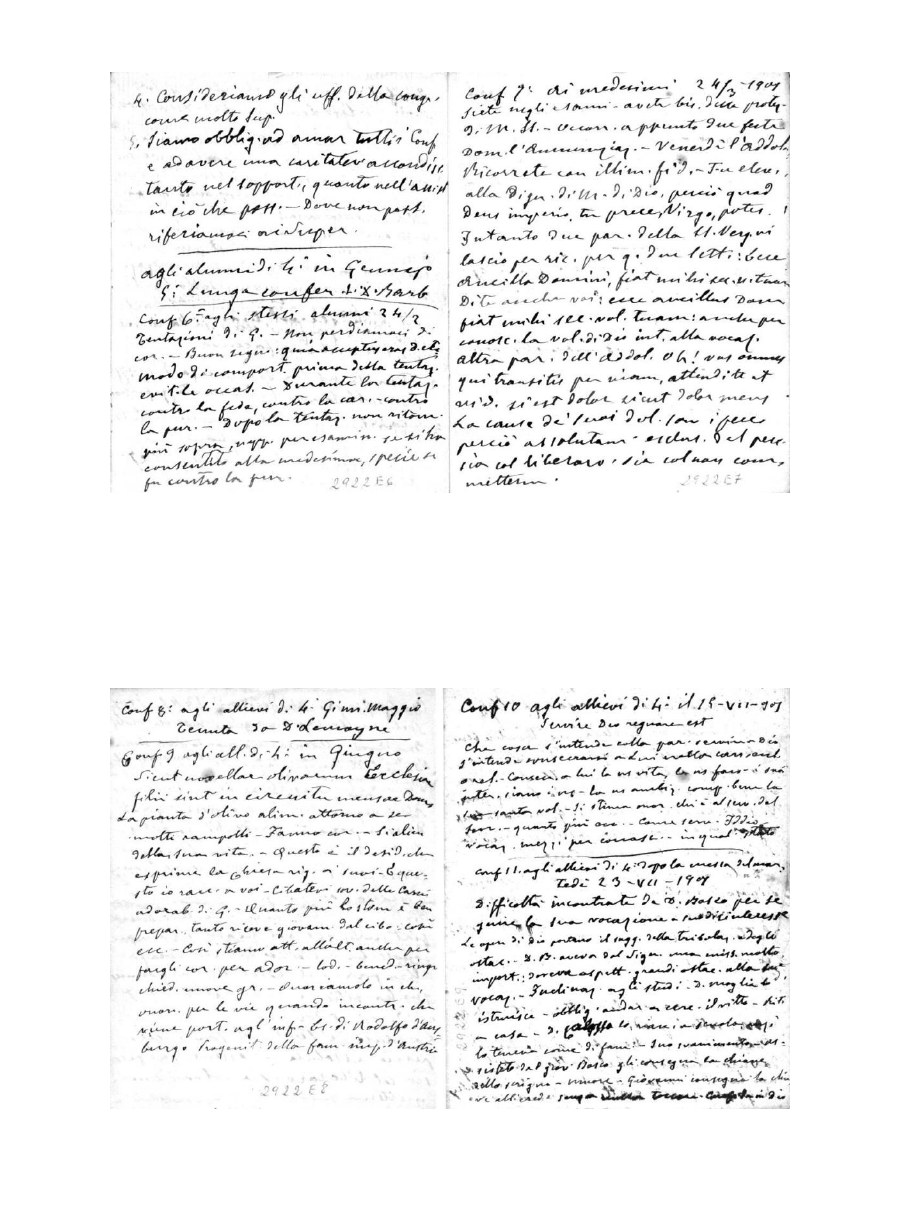 4. Consideriamo gli uff. della congr.
come molto sup.
5. Siamo obblig. ad amar tutti i Conf
e ad avere una carità
tanto nel sopport., quanto nell'assist
in ciò che poss. - Dove non poss.
riferiamoci ai Super.
agli alunni di 4ª in Gennajo
5ª Lunga confer. Barb
Conf 6ª agli stessi alunni 24/2
Tentazioni di G. - Non perdiamoci di
cor. - Buon segno: quia acceptus eras
modo di comport. prima della tentaz.
evit. le occas. - Durante la tentaz.
contro la fede, contro la car. - contro
la pur. - Dopo la tentaz. non ritorn.
più sopra, per esamin. se si ha
consentito alla medesima, specie se
fu contro la pur.
2922E6
Conf 7ª ai medesimi 24/3-1901
Siete negli esami - avete bis. della protez.
di M. SS. - Occorr. appunto due feste
Dom. l'Annunziaz. - Venerdì l'Addol.
Ricorrete con illim. fid. -
alla Dign. di M. di Dio, perciò quod
Deus imperio, tu prece, Virgo, potes.
Intanto due par. della SS. Verg. vi
lascio per ric. per q. due letti: Ecce
Ancilla Domini, fiat mihi sec. v. tuum
Dite anche voi: ecce ancillus Dom
fiat mihi sec. vol. tuam: anche per
conosc. la vol. di Dio int. alla vocaz.
Altra par. dell'Addol. Oh! vos omnes
qui transitis per viam, attendite et
vid. si est dolor sicut dolor meus
La causa de' suoi dol. son i pecc
perciò assolutam. esclus. del pecc.
sia col liberarci, sia col non com-
metterne.
2922E7
Conf 8ª agli allievi di 4ª Ginn. Maggio
tenuta da D. Lemoyne
Conf 9 agli all. di 4ª in Giugno
Sicut novellae olivarum Ecclesiae
filii sint in circuitu mensae Dom.
La pianta d'olivo alim. attorno a se
molti rampolli - Fanno cor. - Si alim
della sua vita. - Questo è il desid. che
esprime la Chiesa rig. a' suoi - E que-
sto io racc. a voi - Cibatevi sov. delle Carni
adorab. di G. - Quanto più lo stom. è ben
prepar. tanto riceve giovam. dal cibo. così
ecc. - Così stiamo att. all'alt. anche per
fargli cor. per ador. - lod. - bened. - ringr.
chied. nuove gr. - Onoriamolo in ch.
onor. per le vie quando incontr. che
viene port. agl'inf. - Es. di Rodolfo d'Au-
burgo Progenit. della fam. imp. d'Austria
2922E8
Conf 10 agli allievi di 4ª il 15-VII-901
Servire Deo regnare est
Che cosa s'intende colla par. servire a Dio
s'intende consecrarsi a Lui
Consecr. a lui la ns vita, le ns forze
la ns comp. bene la
sua santa vol. - Si stima onor. chi è al serv. del
Sovr. - quanto più Come serv. Iddio
vocaz. mezzi per conosc. - in qual stato
Conf 11. agli allievi di 4ª dopo la messa del mar-
tedì 23-VII-1901
Difficoltà incontrate da D. Bosco per se
guire la sua vocazione
Le opere di Dio portano il sugg. della tribolaz. e degli
ostac. - D. B. aveva dal Sign. una miss. molto
import.: doveva aspett. grandi ostac. alla sua
vocaz. - Inclinaz. agli studi.
istruisce - obblig. andar a cerc. il vitto
a casa - D.
lo teneva come di fam. - Suo svenimento - as-
sistito dal giov. Bosco gli consegna la chiave
dello scrigno - muore - Giovanni consegna la chia
ve all'erede senza nulla toccare.